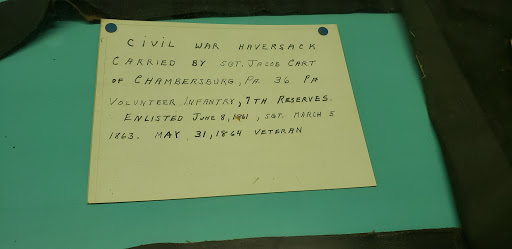 CIVIL WAR HAVERSACK
CARRIED BY SGT. JACOB CART
OF CHAMBERSBURG, PA. 36 PA
VOLUNTEER INFANTRY, 7TH RESERVES.
ENLISTED JUNE 8, 1861, SGT. MARCH 5
1863. MAY 31, 1864 VETERAN